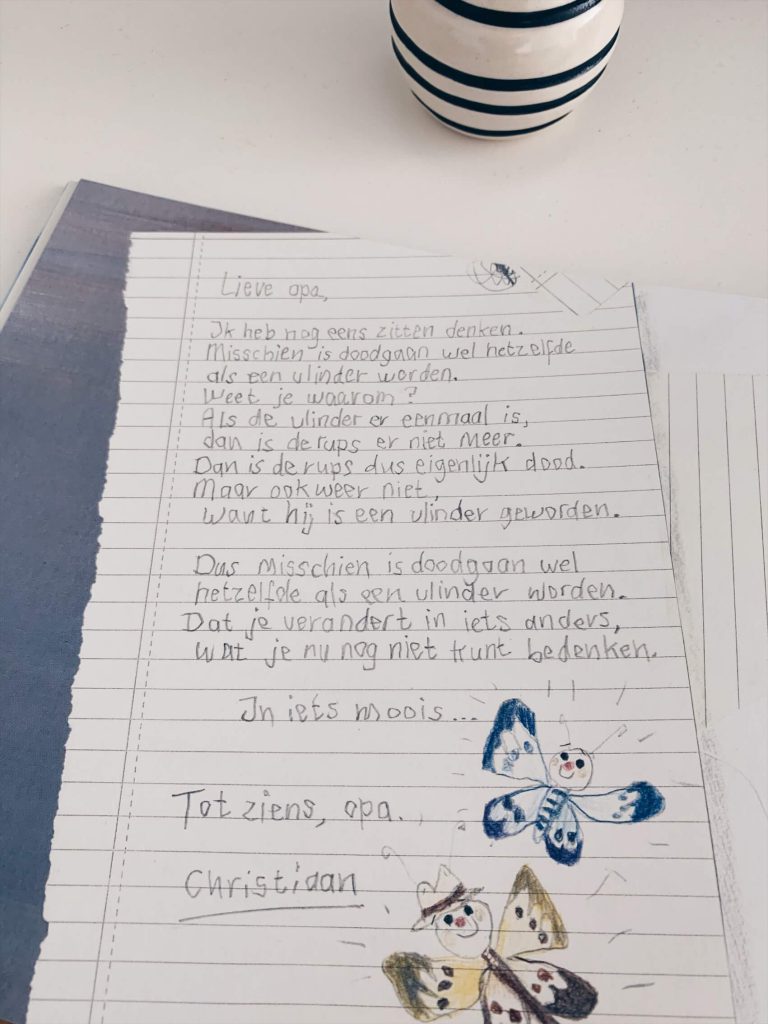 Lieve opa,
Ik heb nog eens zitten denken.
Misschien is doodgaan wel hetzelfde
als een vlinder worden.
Weet je waarom?
Als de vlinder er eenmaal is,
dan is de rups er niet meer.
Dan is de rups dus eigenlijk dood.
Maar ook weer niet,
want hij is een vlinder geworden.
Dus misschien is doodgaan wel
hetzelfde als een vlinder worden.
Dat je verandert in iets anders,
wat je nu nog niet kunt bedenken.
In iets moois...
Tot ziens, opa.
Christiaan